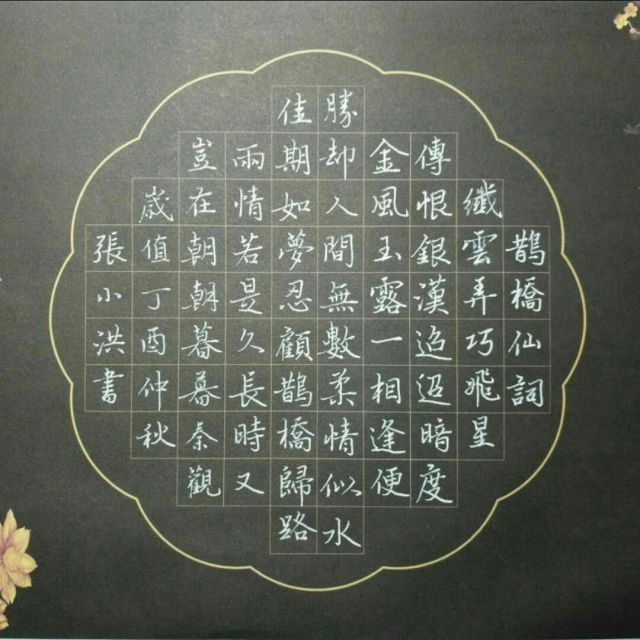 鵲橋仙詞
纖雲弄巧飛星
傳恨銀漢迢迢暗度
金風玉露一相逢便
勝却人間無數柔情似水
佳期如夢忍顧鵲橋歸路
兩情若是久長時又
豈在朝朝暮暮秦觀
歳值丁酉仲秋
張小洪書